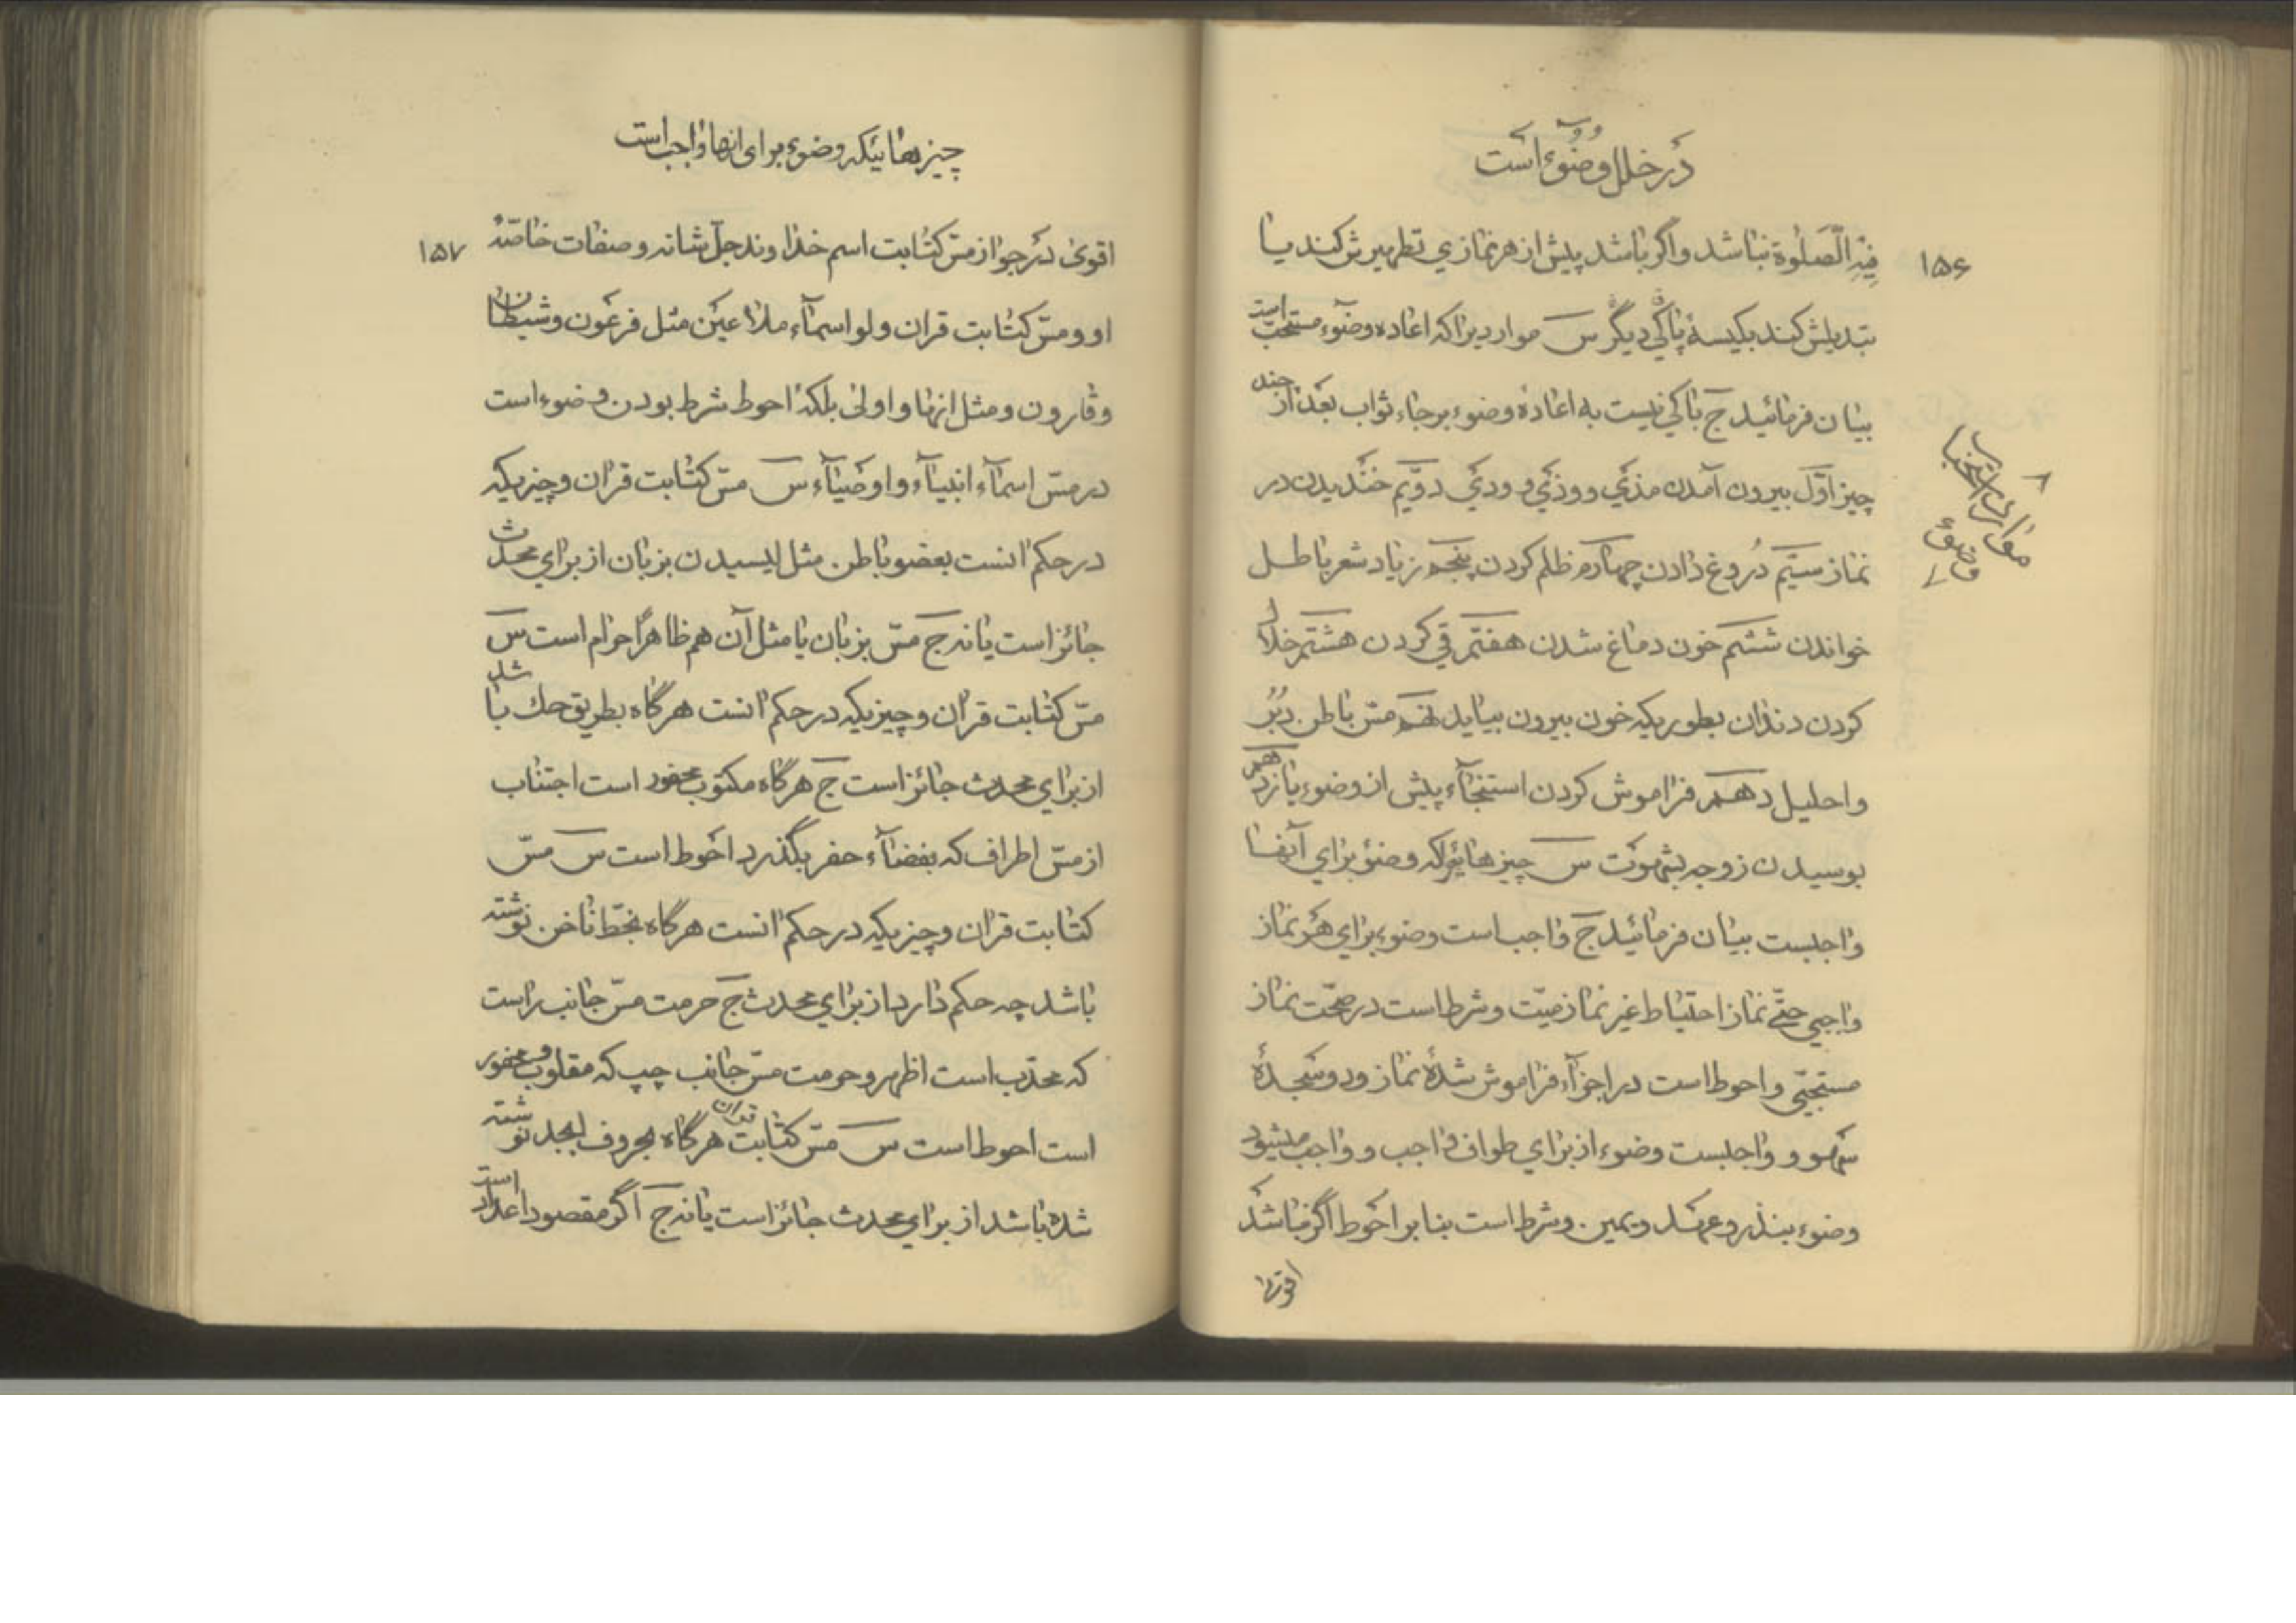 در خلل وضوء است
۱۵۶
فیه الصلوة نباشد و اگر باشد پیش از هر نمازی تطهیرش کند یا
تبدیلش کند بکیسهٔ پاکی دیگر س مواردیرا که اعاده وضوء مستحب است
بیان فرمائید ج باکی نیست به اعادهٔ وضوء برجاء ثواب بعد از چند
چیز اوّل بیرون آمدن مذی و وذی و ودی دویّم خندیدن در
نماز سیّم دروغ دادن چهارم ظلم کردن پنجم زیاد شعر باطل
خواندن ششم خون دماغ شدن هفتم قی کردن هشتم خلال
کردن دندان بطوریکه خون بیرون بیاید نهم مسّ باطن دبُر
و احلیل دهم فراموش کردن استنجآء پیش از وضوء یازدهم
بوسیدن زوجه بشهوت س چیزهائیرا که وضوء برای آنها
واجبست بیان فرمائید ج واجب است وضوء برای هر نماز
واجبی حتّی نماز احتیاط غیر نماز میّت و شرط است در صحّت نماز
مستحبّی و احوط است در اجزآء فراموش شدهٔ نماز و دو سجدهٔ
سهو و واجبست وضوء از برای طواف واجب و واجب میشود
وضوء بنذر و عهد و یمین و شرط است بنا بر احوط اگر نباشد
اقوی
وضوء
چیزهائیکه وضوء برای انها واجب است
۱۵۷
اقوی در جواز مسّ کتابت اسم خداوند جلّ شانه و صفات خاصّهٔ
او و مسّ کتابت قران ولو اسمآء ملاعین مثل فرعون و شیطان
و قارون و مثل انها و اولی بلکه احوط شرط بودن وضوء است
در مسّ اسمآء انبیآء و اوصیآء س مسّ کتابت قران و چیزیکه
در حکم انست بعضو باطن مثل لیسیدن بزبان از برای محدث
جائز است یا نه ج مسّ بزبان یا مثل آن هم ظاهرًا حرام است س
مسّ کتابت قران و چیزیکه در حکم انست هرگاه بطریق حك باشد
از برای محدث جائز است ج هرگاه مکتوب محفور است اجتناب
از مسّ اطراف که بفضآء حفر بگذرد احوط است س مسّ
کتابت قران و چیزیکه در حکم انست هرگاه بخطّ ناخن نوشته
باشد چه حکم دارد از برای محدث ج حرمت مسّ جانب راست
که محدّب است اظهر و حرمت مسّ جانب چپ که مقلوب و محفور
است احوط است س مسّ کتابت قران هرگاه بحروف ابجد نوشته
شده باشد از برای محدث جائز است یا نه ج اگر مقصود اعداد است